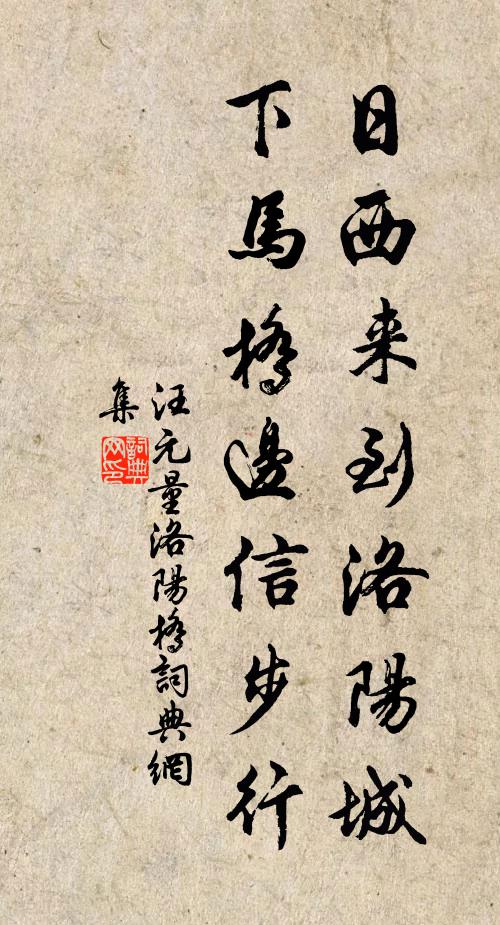 日西来到洛陽城
下馬橋邊信步行
汪元量洛陽橋詞典網
集
詞典網印